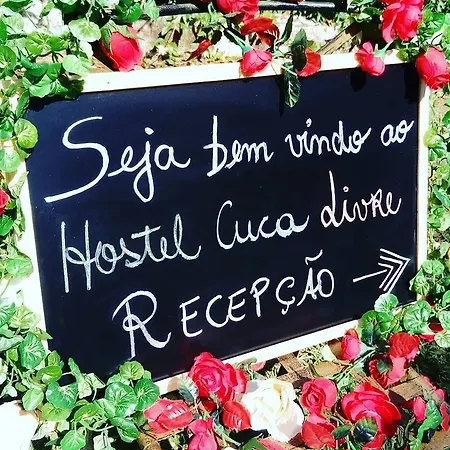 Seja bem vindo ao
Hostel Cuca Livre
RECEPÇÃO